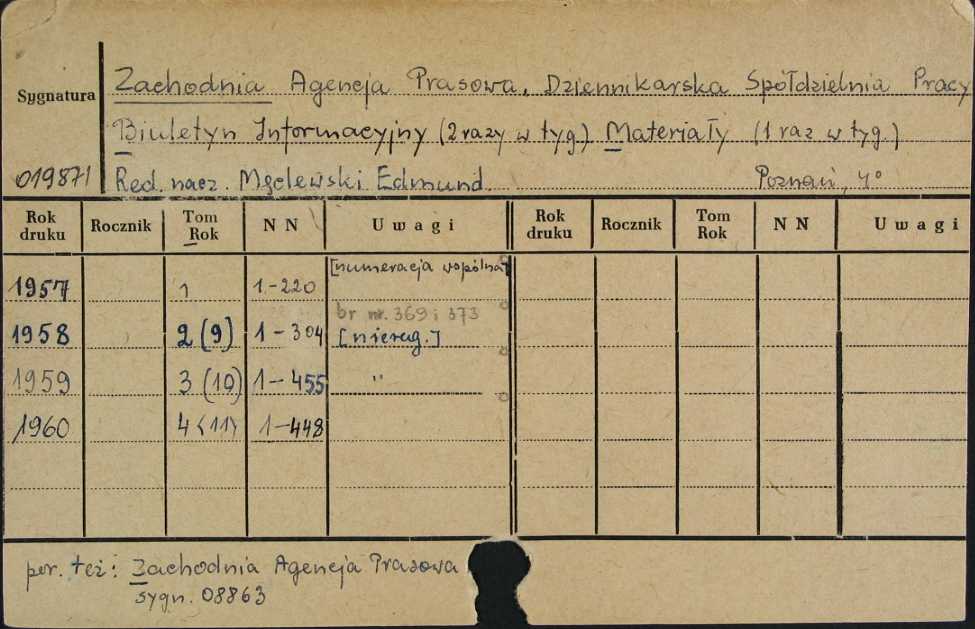 Sygnatura
019871
Zachodnia Agencja Prasowa. Dziennikarska Spółdzielnia Pracy
Biuletyn Informacyjny (2 razy w tyg.) Materiały (1 raz w tyg.)
Red. nacz. Męclewski Edmund. Poznań, 4°
Rok druku Rocznik Tom Rok NN Uwagi Rok druku Rocznik Tom Rok NN Uwagi
[numeracja wspólna]
1957 1 1-220
br nr. 369 i 373
1958 2 (9) 1-304 [nierag.]
1959 3 (10) 1-455 "
1960 4 (11) 1-448
por. też: Zachodnia Agencja Prasowa
sygn. 08863